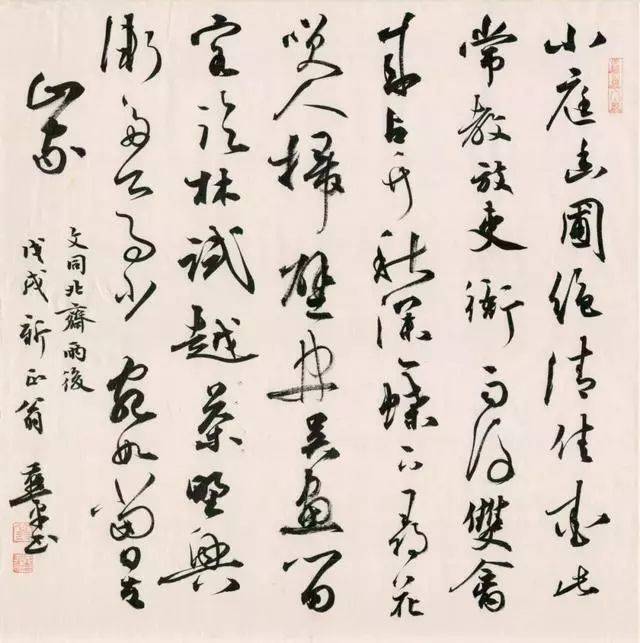 小庭幽圃絕清佳愛此
常教放吏衙雨後雙禽
來占竹秋深一蝶下尋花
喚人掃壁開吳畫留
客臨軒試越茶野興
漸多公事少宛如當日在
山家
文同北齋雨後
戊戌新正翁書